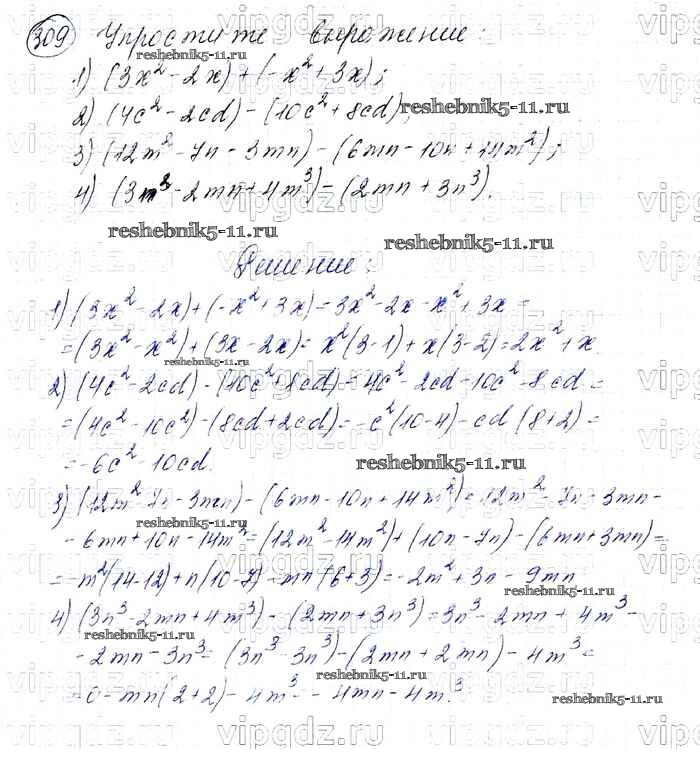 309 Упростите выражение:
1) (3x² - 2x) + (-x² + 3x);
2) (4c² - 2cd) - (10c² + 8cd);
reshebnik5-11.ru
3) (12m² - 7n - 3mn) - (6mn - 10n + 14m²);
4) (3n³ - 2mn + 4m³) - (2mn + 3n³).
reshebnik5-11.ru
reshebnik5-11.ru
Решение:
1) (3x² - 2x) + (-x² + 3x) = 3x² - 2x - x² + 3x =
= (3x² - x²) + (3x - 2x) = x²(3-1) + x(3-2) = 2x² + x.
reshebnik5-11.ru
2) (4c² - 2cd) - (10c² + 8cd) = 4c² - 2cd - 10c² - 8cd =
= (4c² - 10c²) - (8cd + 2cd) = -c²(10-4) - cd(8+2) =
= -6c² - 10cd.
reshebnik5-11.ru
3) (12m² - 7n - 3mn) - (6mn - 10n + 14m²) = 12m² - 7n - 3mn -
- 6mn + 10n - 14m² = (12m² - 14m²) + (10n - 7n) - (6mn + 3mn) =
= -m²(14-12) + n(10-7) - mn(6+3) = -2m² + 3n - 9mn
4) (3n³ - 2mn + 4m³) - (2mn + 3n³) = 3n³ - 2mn + 4m³ -
- 2mn - 3n³ = (3n³ - 3n³) - (2mn + 2mn) - 4m³ =
= 0 - mn(2+2) - 4m³ = - 4mn - 4m³.
reshebnik5-11.ru
reshebnik5-11.ru
vipgdz.ru